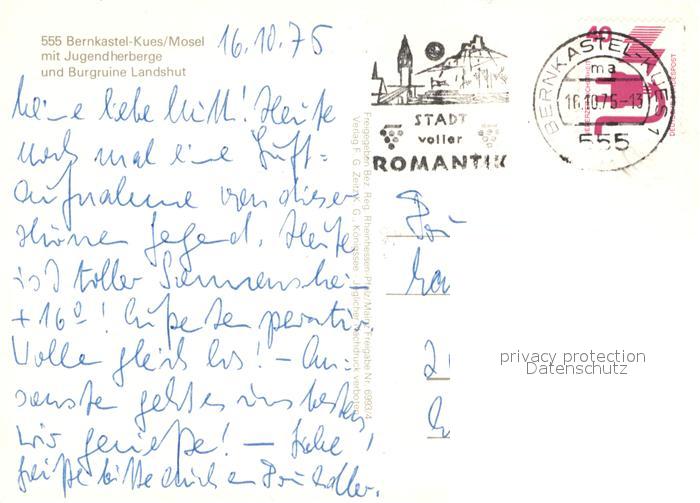 555 Bernkastel-Kues/Mosel
mit Jugendherberge
und Burgruine Landshut
16.10.75
Meine liebe Mutti! Heute
noch mal eine Luft=
aufnahme von dieser
schönen Gegend. Heute
ist toller Sonnenschein
+ 16°! Außentemperatur.
Wolle gleich los! – An=
sonsten geht es uns bestens
wir genießen! –
grüße bitte auch
Freigegeben Bez. Reg. Rheinhessen-Pfalz/Mainz Freigabe Nr. 6993/4
Verlag F. G. Zeitz K. G., Königssee. Jeglicher Nachdruck verboten
STADT
voller
ROMANTIK
BERNKASTEL-KUES 1
ma
16.10.75-13
555
40
DEUTSCHE BUNDESPOST
privacy protection
Datenschutz